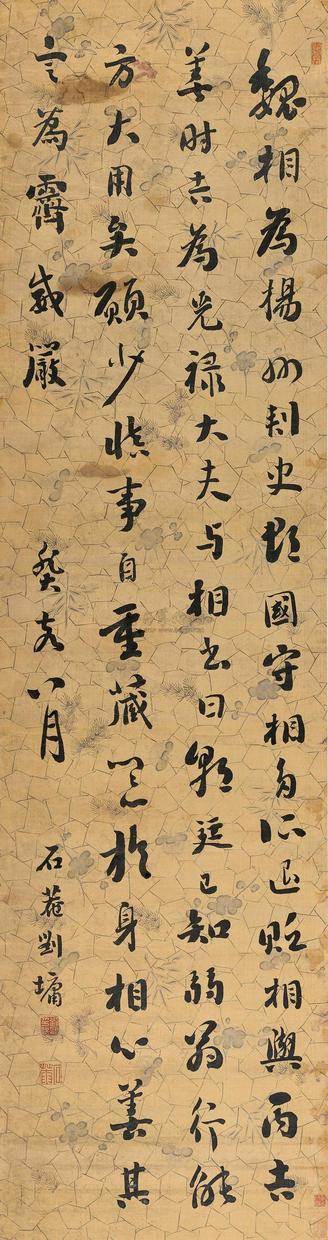 魏相為揚州刺史郡國守相多所退貶相與丙吉
善时吉為光祿大夫与相书曰朝廷已知弱翁行能
方大用矣願少慎事自重藏器於身相心善其
言為霽威嚴 癸亥八月
石菴劉墉